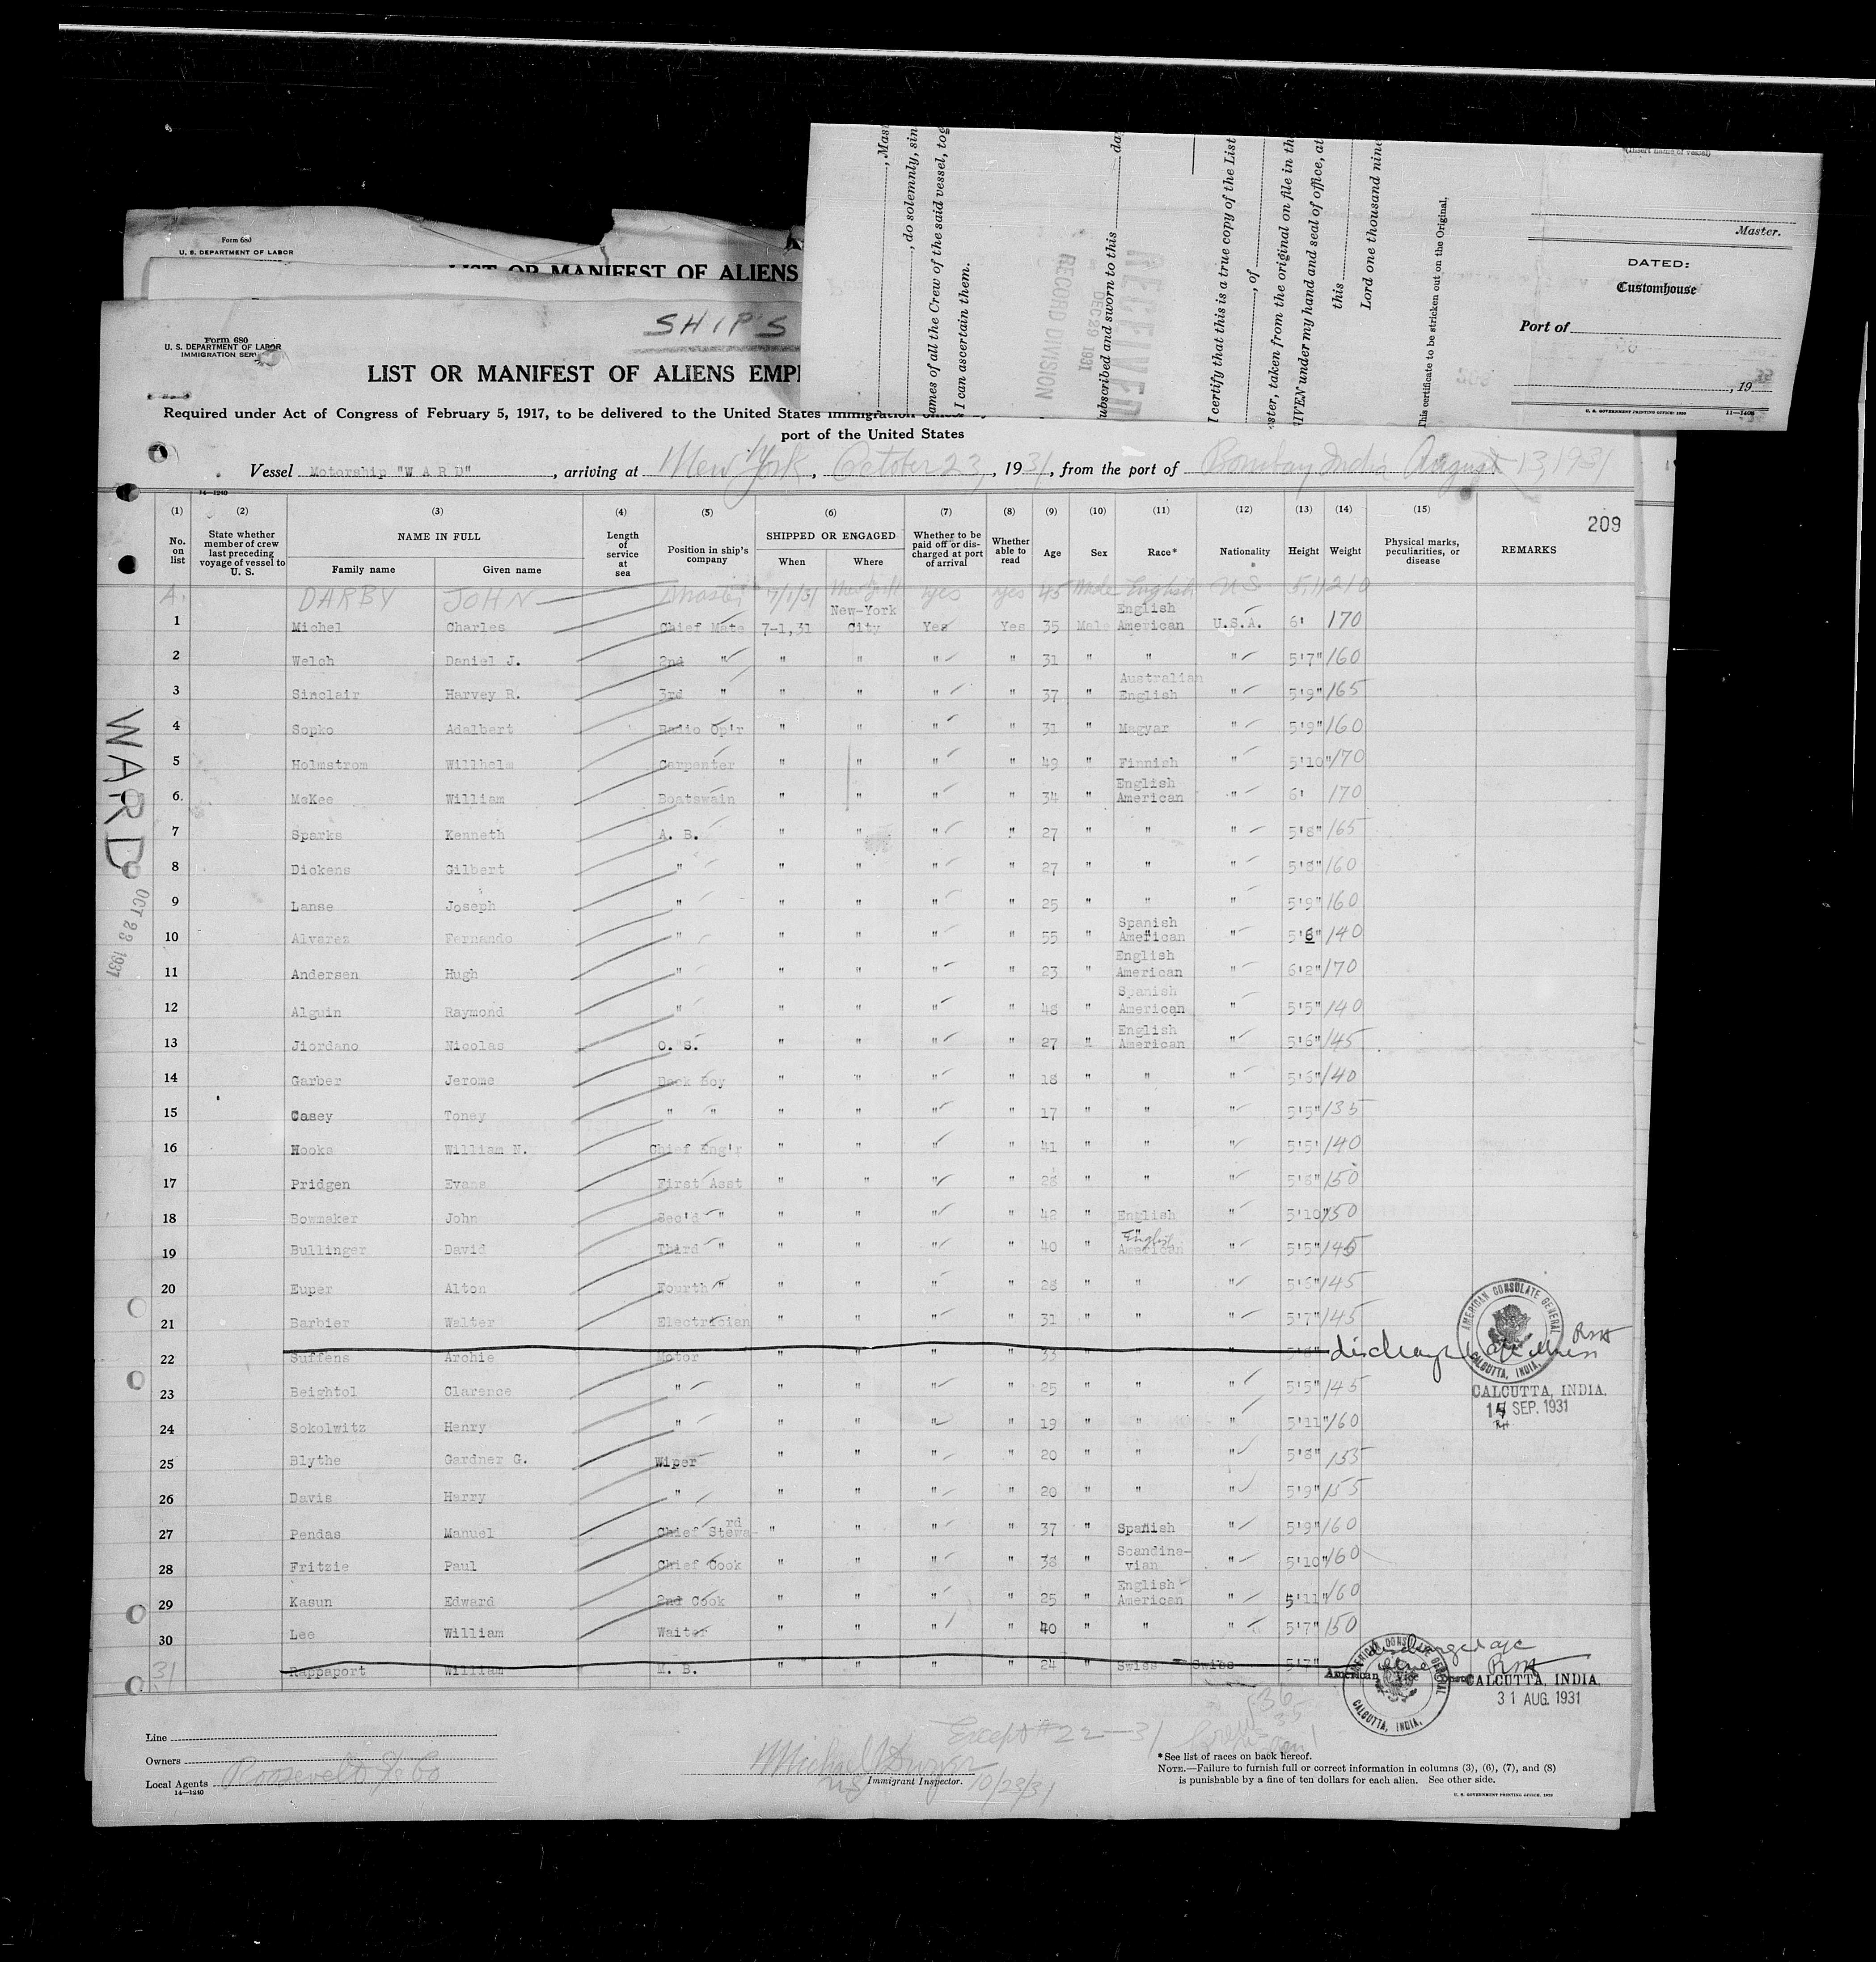 Form 680
U. S. DEPARTMENT OF LABOR
LIST OR MANIFEST OF ALIENS
SHIP'S
Form 680
U. S. DEPARTMENT OF LABOR
IMMIGRATION SERV
LIST OR MANIFEST OF ALIENS EMPL
Required under Act of Congress of February 5, 1917, to be delivered to the United States Immigration
port of the United States
, Mas
, do solemnly, sin
ames of all the Crew of the said vessel, tog
I can ascertain them.
RECORD DIVISION
DEC 29 1931
RECEIVED
ubscribed and sworn to this da
I certify that this is a true copy of the List
, of
ster, taken from the original on file in th
IVEN under my hand and seal of office, at
this
Lord one thousand nine
This certificate to be stricken out on the Original.
(Insert name of vessel)
Master.
DATED:
Customhouse
Port of
, 19
U. S. GOVERNMENT PRINTING OFFICE: 1930 11—1408
Vessel Motorship "W A R D" , arriving at New York , October 23 , 1931, from the port of Bombay India August 13, 1931
14—1240
209
(1) (2) (3) (4) (5) (6) (7) (8) (9) (10) (11) (12) (13) (14) (15)
No. on list State whether member of crew last preceding voyage of vessel to U. S. NAME IN FULL Family name Given name Length of service at sea Position in ship's company SHIPPED OR ENGAGED When Where Whether to be paid off or discharged at port of arrival Whether able to read Age Sex Race* Nationality Height Weight Physical marks, peculiarities, or disease REMARKS
A. DARBY JOHN Master 7/1/31 New York Yes Yes 45 Male English U S 5,11 210
1 Michel Charles Chief Mate 7-1,31 New-York City Yes Yes 35 Male English American U.S.A. 6' 170
2 Welch Daniel J. 2nd " " " " " 31 " " " 5'7" 160
3 Sinclair Harvey R. 3rd " " " " " 37 " Australian English " 5'9" 165
4 Sopko Adalbert Radio Op'r " " " " 31 " Magyar " 5'9" 160
5 Holmstrom Willhelm Carpenter " " " " 49 " Finnish " 5'10" 170
6. McKee William Boatswain " " " " 34 " English American " 6' 170
7 Sparks Kenneth A. B. " " " " 27 " " " 5'8" 165
8 Dickens Gilbert " " " " " 27 " " " 5'8" 160
9 Lanse Joseph " " " " " 25 " " " 5'9" 160
10 Alvarez Fernando " " " " " 55 " Spanish American " 5'6" 140
11 Andersen Hugh " " " " " 23 " English American " 6'2" 170
12 Alguin Raymond " " " " " 48 " Spanish American " 5'5" 140
13 Jiordano Nicolas O. S. " " " " 27 " English American " 5'6" 145
14 Garber Jerome Deck Boy " " " " 18 " " " 5'6" 140
15 Casey Toney " " " " " " 17 " " " 5'5" 135
16 Hooks William N. Chief Eng'r " " " " 41 " " " 5'5' 140
17 Pridgen Evans First Asst " " " " 28 " " " 5'8" 150
18 Bowmaker John Sec'd " " " " " 42 " English " 5'10" 150
19 Bullinger David Third " " " " " 40 " English American " 5'5" 145
20 Euper Alton Fourth " " " " " 28 " " " 5'6" 145
21 Barbier Walter Electrician " " " " 31 " " " 5'7" 145
22 Suffens Archie Motor " " " " 33 " " " 5'8"
23 Beightol Clarence " " " " " 25 " " " 5'5" 145
24 Sokolwitz Henry " " " " " 19 " " " 5'11" 160
25 Blythe Gardner G. Wiper " " " " 20 " " " 5'8" 155
26 Davis Harry " " " " " 20 " " " 5'9" 155
27 Pendas Manuel Chief Steward " " " " 37 " Spanish " 5'9" 160
28 Fritzie Paul Chief Cook " " " " 38 " Scandinavian " 5'10" 160
29 Kasun Edward 2nd Cook " " " " 25 " English American " 5'11" 160
30 Lee William Waiter " " " " 40 " " " 5'7" 150
31 Rappaport William M. B. " " " " 24 " Swiss Swiss 5'7"
AMERICAN CONSULATE GENERAL
CALCUTTA, INDIA.
CALCUTTA, INDIA.
SEP. 1931
AMERICAN CONSULATE GENERAL
CALCUTTA, INDIA.
American Vice
CALCUTTA, INDIA.
31 AUG. 1931
WARD
OCT 23 1931
Except #22—31
Line
Owners
Local Agents Roosevelt SS Co
14—1240
Immigrant Inspector. 10/23/31
*See list of races on back hereof.
NOTE.—Failure to furnish full or correct information in columns (3), (6), (7), and (8)
is punishable by a fine of ten dollars for each alien. See other side.
U. S. GOVERNMENT PRINTING OFFICE: 1929